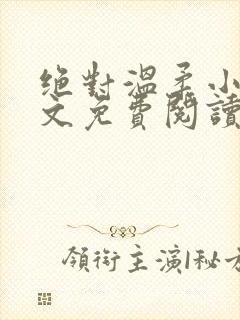 絕對溫柔小
文免費閱讀
領銜主演|秘方